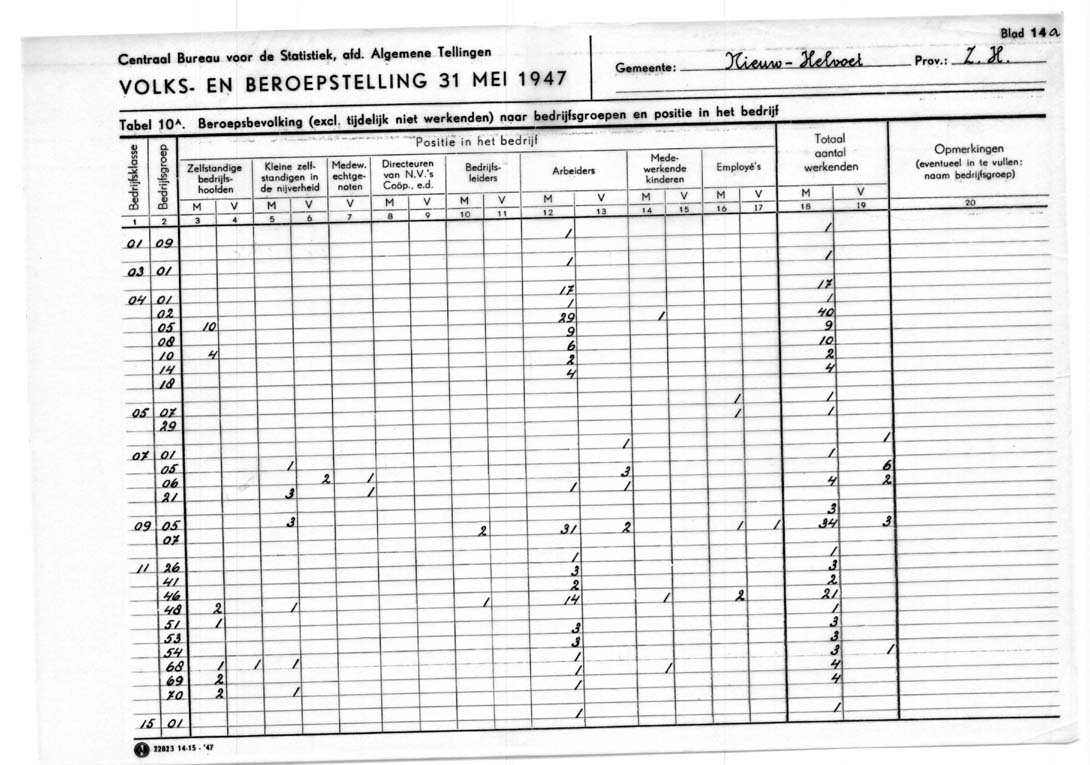 Blad 14a
Centraal Bureau voor de Statistiek, afd. Algemene Tellingen
VOLKS- EN BEROEPSTELLING 31 MEI 1947
Gemeente: Nieuw-Helvoet Prov.: Z. H.
Tabel 10A. Beroepsbevolking (excl. tijdelijk niet werkenden) naar bedrijfsgroepen en positie in het bedrijf
Bedrijfsklasse
Bedrijfsgroep
Positie in het bedrijf
Zelfstandige bedrijfs-hoofden
Kleine zelf-standigen in de nijverheid
Medew. echtge-noten
Directeuren van N.V.'s Coöp., e.d.
Bedrijfs-leiders
Arbeiders
Mede-werkende kinderen
Employé's
Totaal aantal werkenden
Opmerkingen (eventueel in te vullen: naam bedrijfsgroep)
M V M V V M V M V M V M V M V M V
1 2 3 4 5 6 7 8 9 10 11 12 13 14 15 16 17 18 19 20
01 09 1 1
03 01 1 1
04 01 17 17
02 1 1
05 10 29 1 40
08 9 9
10 4 6 10
14 2 2
18 4 4
05 07 1 1
29 1 1
07 01 1 1
05 1 1
06 2 1 3 6
21 3 1 1 1 4 2
09 05 3 3
07 2 31 2 1 1 34 3
11 26 1 1
41 3 3
46 2 2
48 2 1 1 14 1 2 21
51 1 1
53 3 3
54 3 3
68 1 1 1 1 3 1
69 2 1 1 4
70 2 1 1 4
15 01 1 1
22823 14-15 - '47